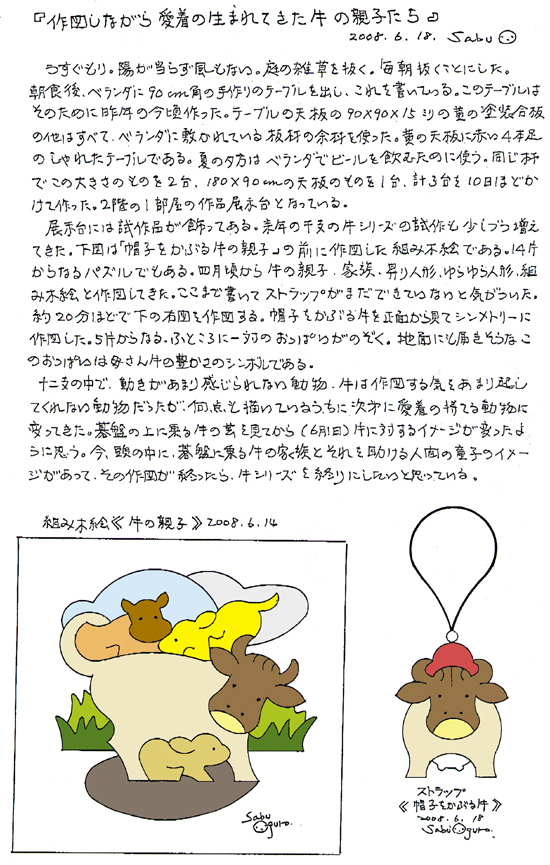 『作図しながら愛着の生まれてきた牛の親子たち』
2008.6.18. Sabu
うすぐもり。陽が当らず風もない。庭の雑草を抜く。毎朝抜くことにした。
朝食後、ベランダに90cm角の手作りのテーブルを出し、これを書いている。このテーブルは
そのために昨年の今頃作った。テーブルの天板の90×90×15ミリの黄の塗装合板
の他はすべて、ベランダに敷かれている板材の余材を使った。黄の天板に赤い4本足
のしゃれたテーブルである。夏の夕方はベランダでビールを飲むために使う。同じ材
でこの大きさのものを2台、180×90cmの天板のものを1台、計3台を10日ほどか
けて作った。2階の1部屋の作品展示台となっている。
展示台には試作品が飾ってある。来年の干支の牛シリーズの試作も少しづつ増え
てきた。下図は「帽子をかぶる牛の親子」の前に作図した組み木絵である。14片
からなるパズルでもある。四月頃から牛の親子、家族、昇り人形、ゆらゆら人形、組
み木絵と作図してきた。ここまで書いてストラップがまだできていないと気がついた。
約20分ほどで下の右図を作図する。帽子をかぶる牛を正面から見てシンメトリーに
作図した。5片からなる。ふところに一対のおっぱいがのぞく。地面にも届きそうなこ
のおっぱいは母さん牛の豊かさのシンボルである。
十二支の中で、動きがあまり感じられない動物、牛は作図する気をあまり起し
てくれない動物だったが、何点と描いているうちに次第に愛着の持てる動物に
変ってきた。碁盤の上に乗る牛の芸を見てから(6月1日)牛に対するイメージが変ったよ
うに思う。今、頭の中に、碁盤に乗る牛の家族とそれを助ける人間の童子のイメー
ジがあって、その作図が終ったら、牛シリーズを終りにしたいと思っている。
組み木絵《牛の親子》2008.6.14
Sabu
Oguro.
ストラップ
《帽子をかぶる牛》
2008.6.18
Sabu Oguro.